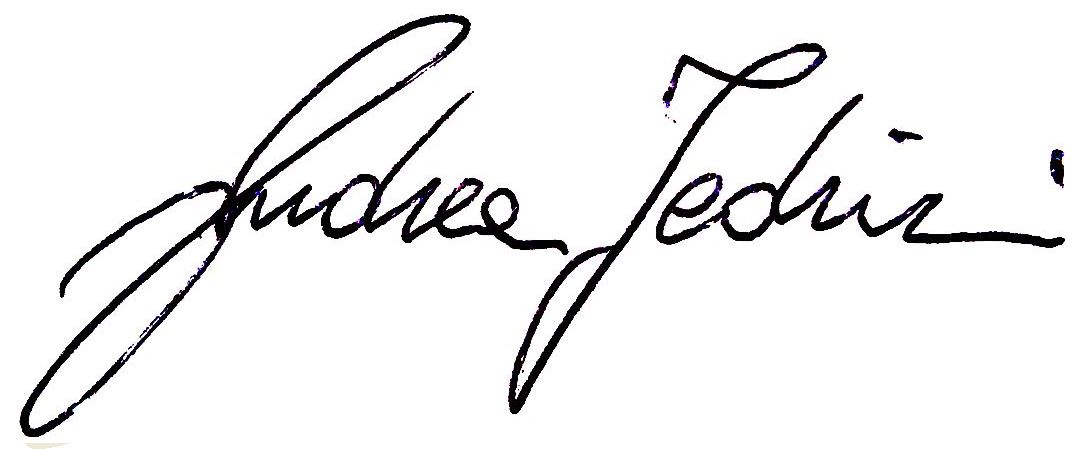 Andrea Tedini